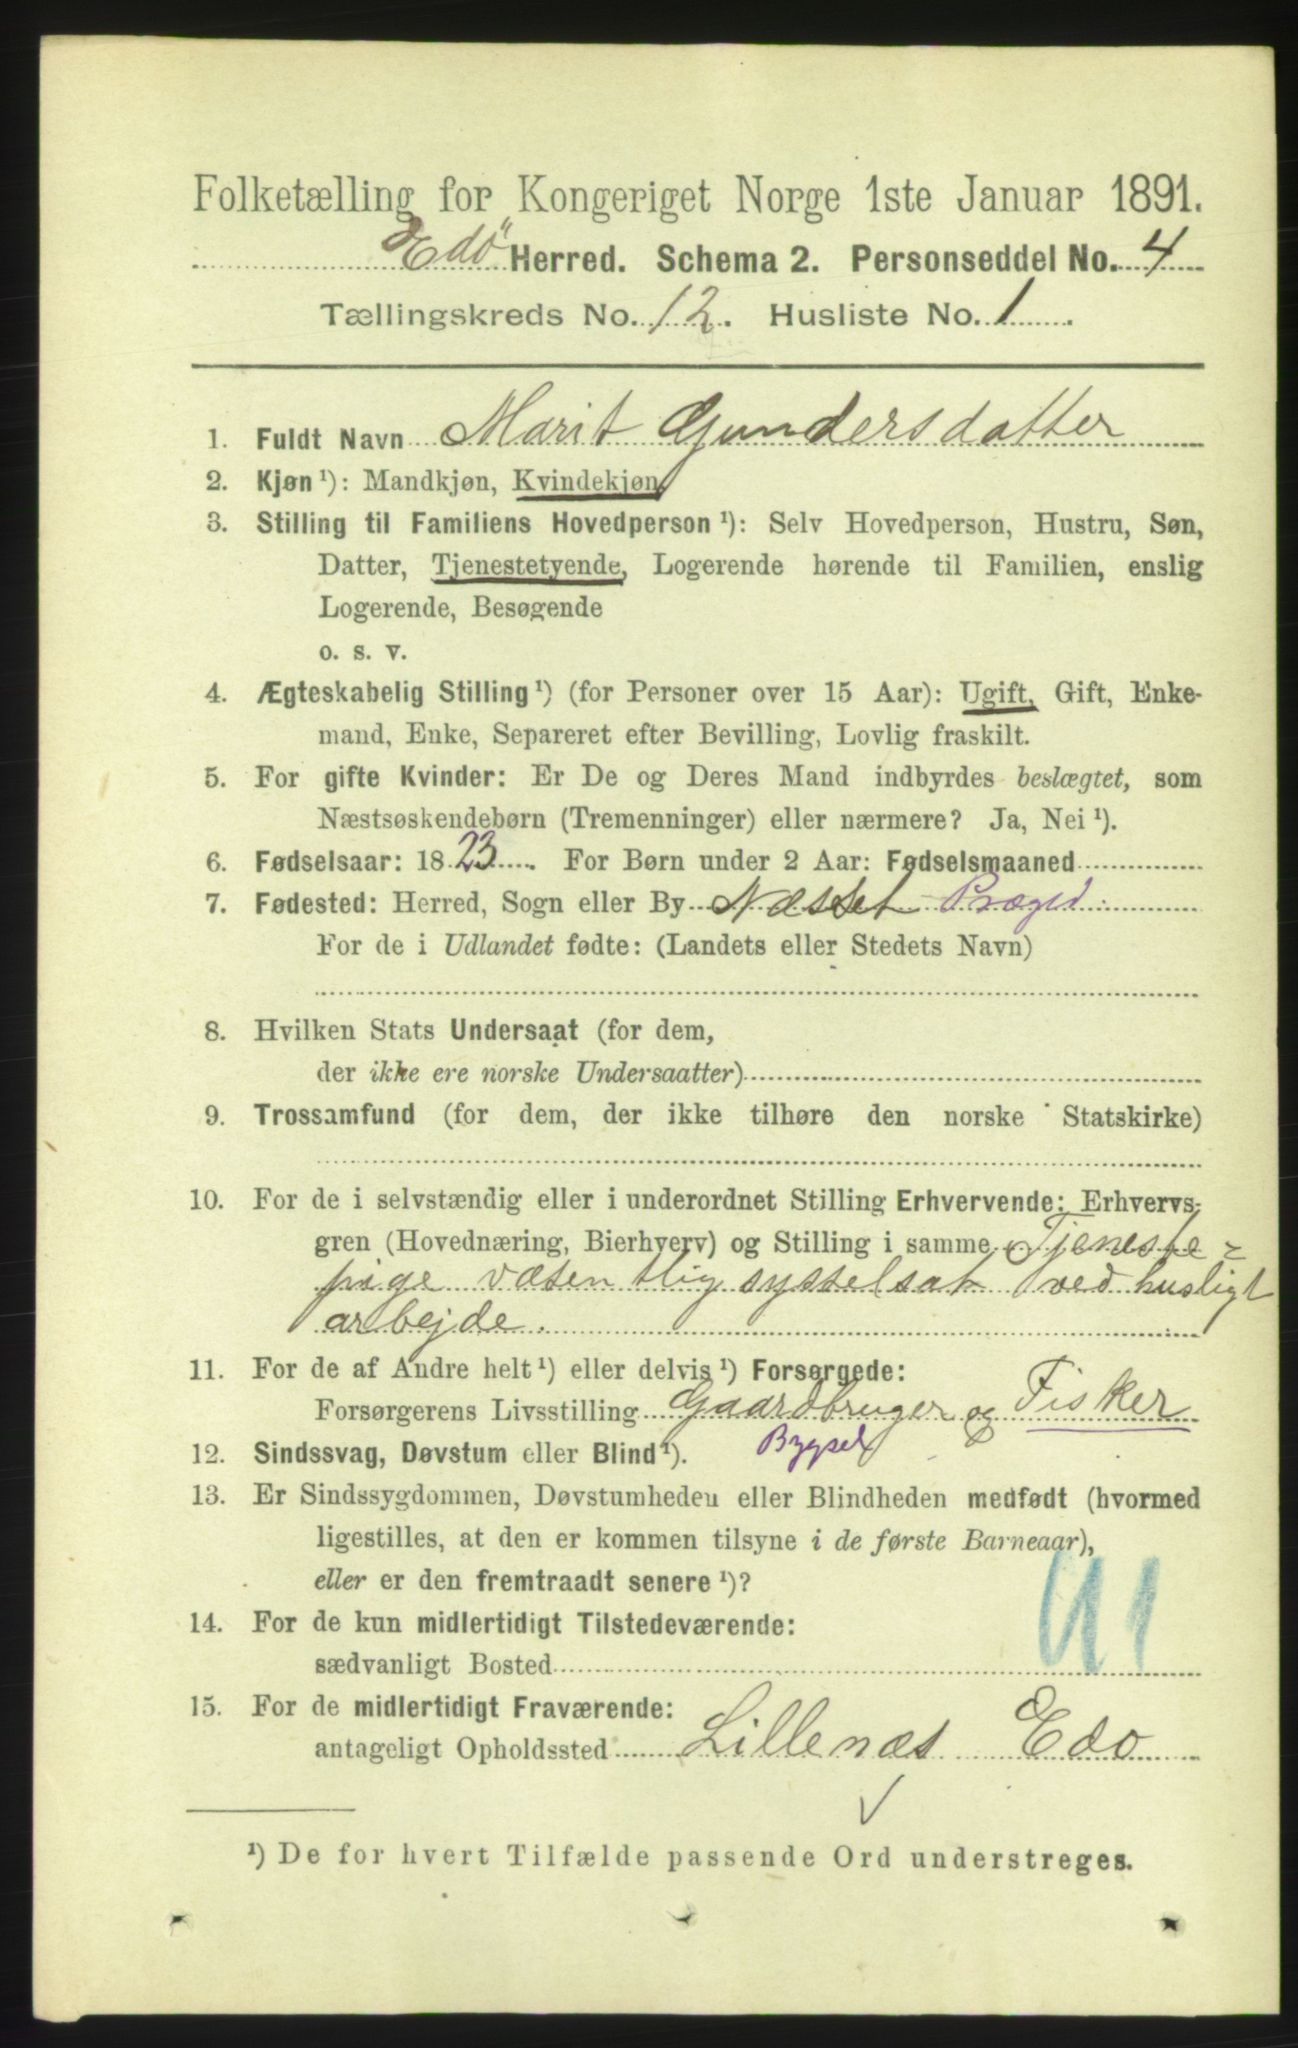 Folketælling for Kongeriget Norge 1ste Januar 1891.
Edö Herred. Schema 2. Personseddel No. 4
Tællingskreds No. 12. Husliste No. 1.
1. Fuldt Navn Marit Gundersdatter
2. Kjøn ¹): Mandkjøn, Kvindekjøn
3. Stilling til Familiens Hovedperson ¹): Selv Hovedperson, Hustru, Søn,
Datter, Tjenestetyende, Logerende hørende til Familien, enslig
Logerende, Besøgende
o. s. v.
4. Ægteskabelig Stilling ¹) (for Personer over 15 Aar): Ugift, Gift, Enke-
mand, Enke, Separeret efter Bevilling, Lovlig fraskilt.
5. For gifte Kvinder: Er De og Deres Mand indbyrdes beslægtet, som
Næstsøskendebørn (Tremenninger) eller nærmere? Ja, Nei ¹).
6. Fødselsaar: 1823. For Børn under 2 Aar: Fødselsmaaned
7. Fødested: Herred, Sogn eller By Næsset Prægjd
For de i Udlandet fødte: (Landets eller Stedets Navn)
8. Hvilken Stats Undersaat (for dem,
der ikke ere norske Undersaatter)
9. Trossamfund (for dem, der ikke tilhøre den norske Statskirke)
10. For de i selvstændig eller i underordnet Stilling Erhvervende: Erhvervs-
gren (Hovednæring, Bierhverv) og Stilling i samme Tjeneste=
pige væsentlig sysselsat ved husligt
arbejde.
11. For de af Andre helt ¹) eller delvis ¹) Forsørgede:
Forsørgerens Livsstilling Gaardbruger og Fisker
Bygsel
12. Sindssvag, Døvstum eller Blind ¹).
13. Er Sindssygdommen, Døvstumheden eller Blindheden medfødt (hvormed
ligestilles, at den er kommen tilsyne i de første Barneaar),
eller er den fremtraadt senere ¹)?
14. For de kun midlertidigt Tilstedeværende:
sædvanligt Bosted
15. For de midlertidigt Fraværende:
antageligt Opholdssted Lillenæs Edo
¹) De for hvert Tilfælde passende Ord understreges.